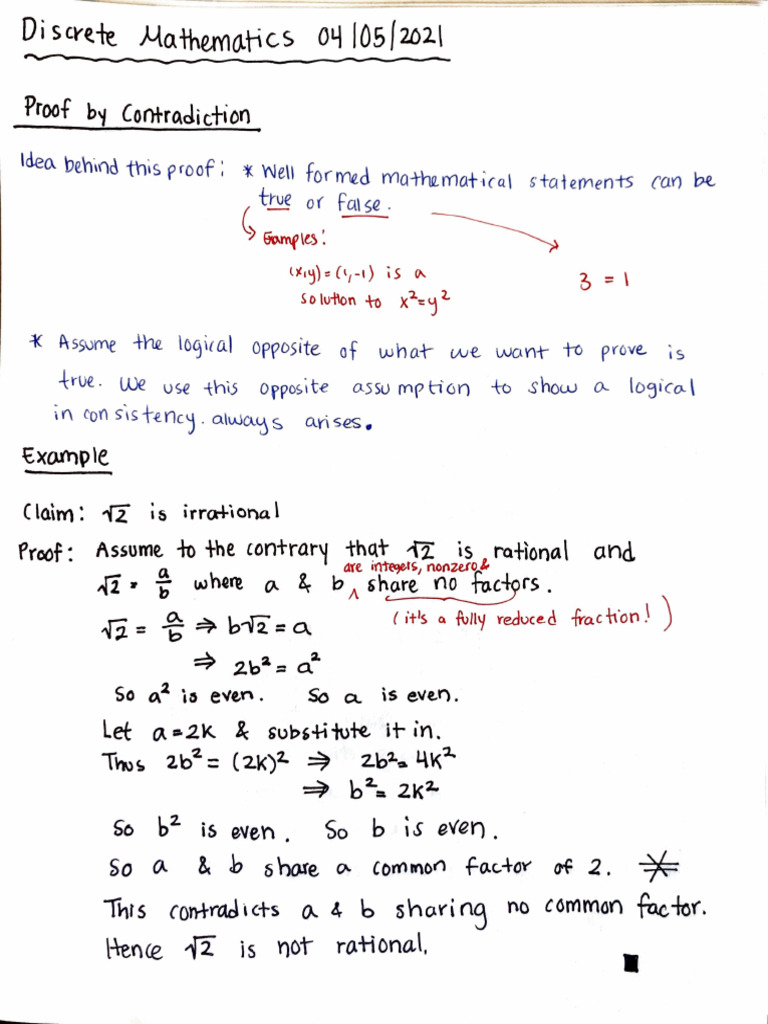 Discrete Mathematics 04/05/2021
Proof by Contradiction
Idea behind this proof: * Well formed mathematical statements can be
true or false.
Examples:
(x,y)=(1,-1) is a
solution to x²=y²
3 = 1
* Assume the logical opposite of what we want to prove is
true. We use this opposite assumption to show a logical
inconsistency. always arises.
Example
Claim: √2 is irrational
Proof: Assume to the contrary that √2 is rational and
are integers, nonzero &
√2 = a/b where a & b ^ share no factors.
√2 = a/b ⇒ b√2 = a
(it's a fully reduced fraction!)
⇒ 2b² = a²
So a² is even. So a is even.
Let a=2k & substitute it in.
Thus 2b² = (2k)² ⇒ 2b² = 4k²
⇒ b² = 2k²
So b² is even. So b is even.
So a & b share a common factor of 2.
This contradicts a & b sharing no common factor.
Hence √2 is not rational.
■